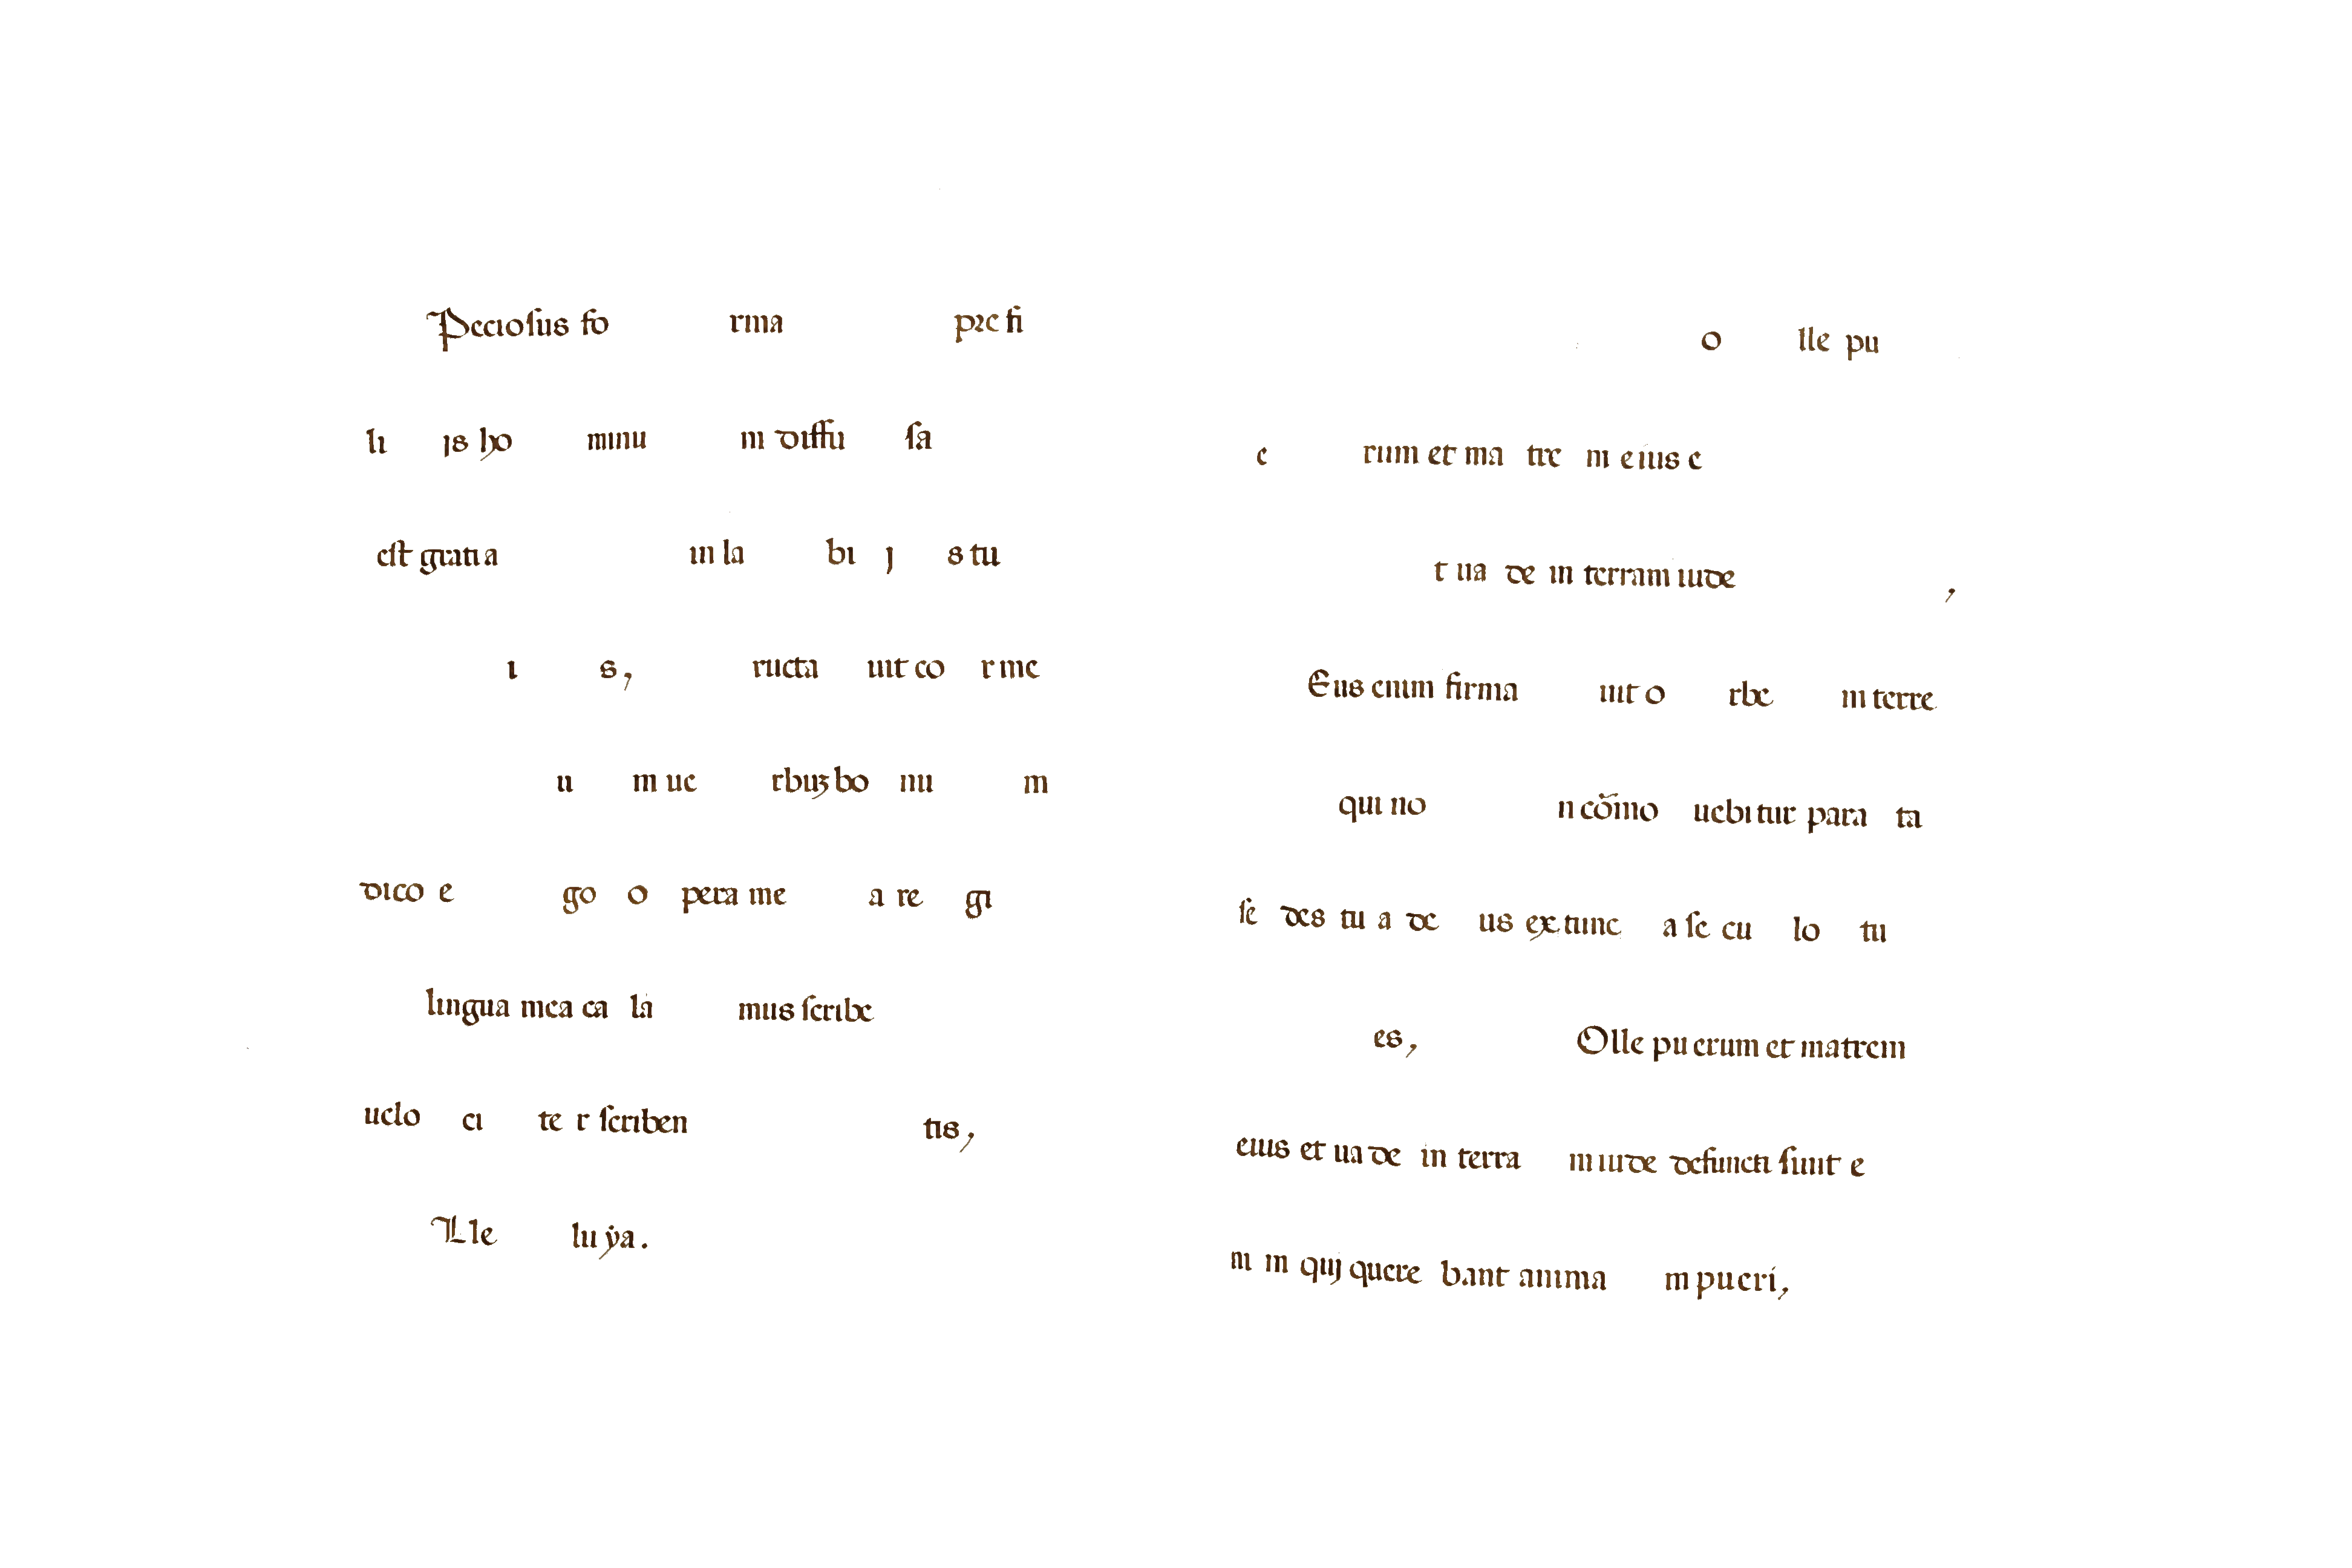 Peciosus fo rma pre fi
li js ho minu m diffu sa
est gratia in la bi j s tu
i s, ructa uit co r me
u m ue rbuʒ bo nu m
dico e go o pera me a re gi
lingua mea ca la mus scribe
uelo ci te r scriben tis,
Lle lu ẏa.
o lle pu
e rum et ma tre m eius e
t ua de in terram iude ,
Eus enim firma uit o rbe m terre
qui no n cōmo uebi tur para ta
se des tu a de us ex tunc a se cu lo tu
es, Olle pu erum et matrem
eius et ua de in terra m iude defuncti sunt e
ni m quj quere bant anima m pueri,